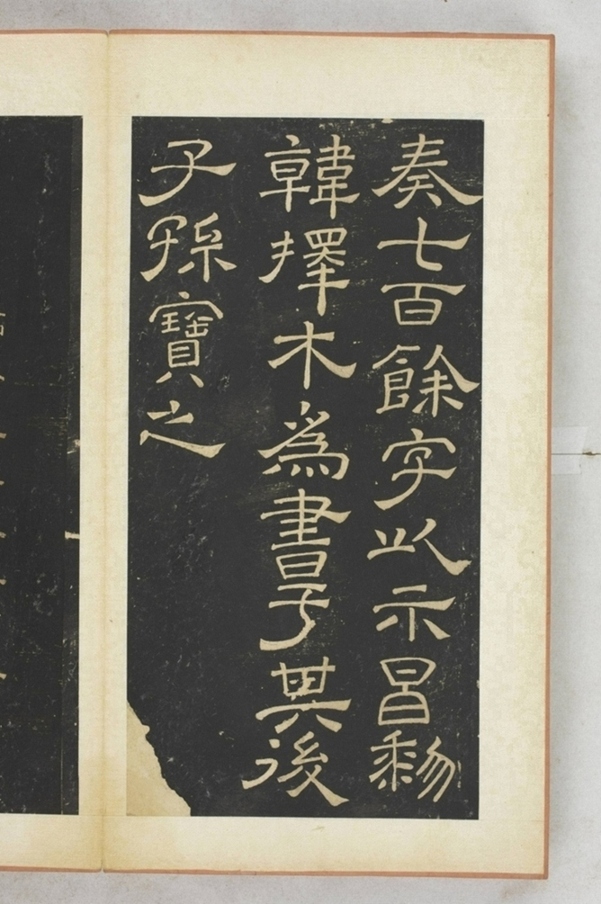 奏七百餘字以示昌黎
韓擇木爲書予其後
子孫寶之